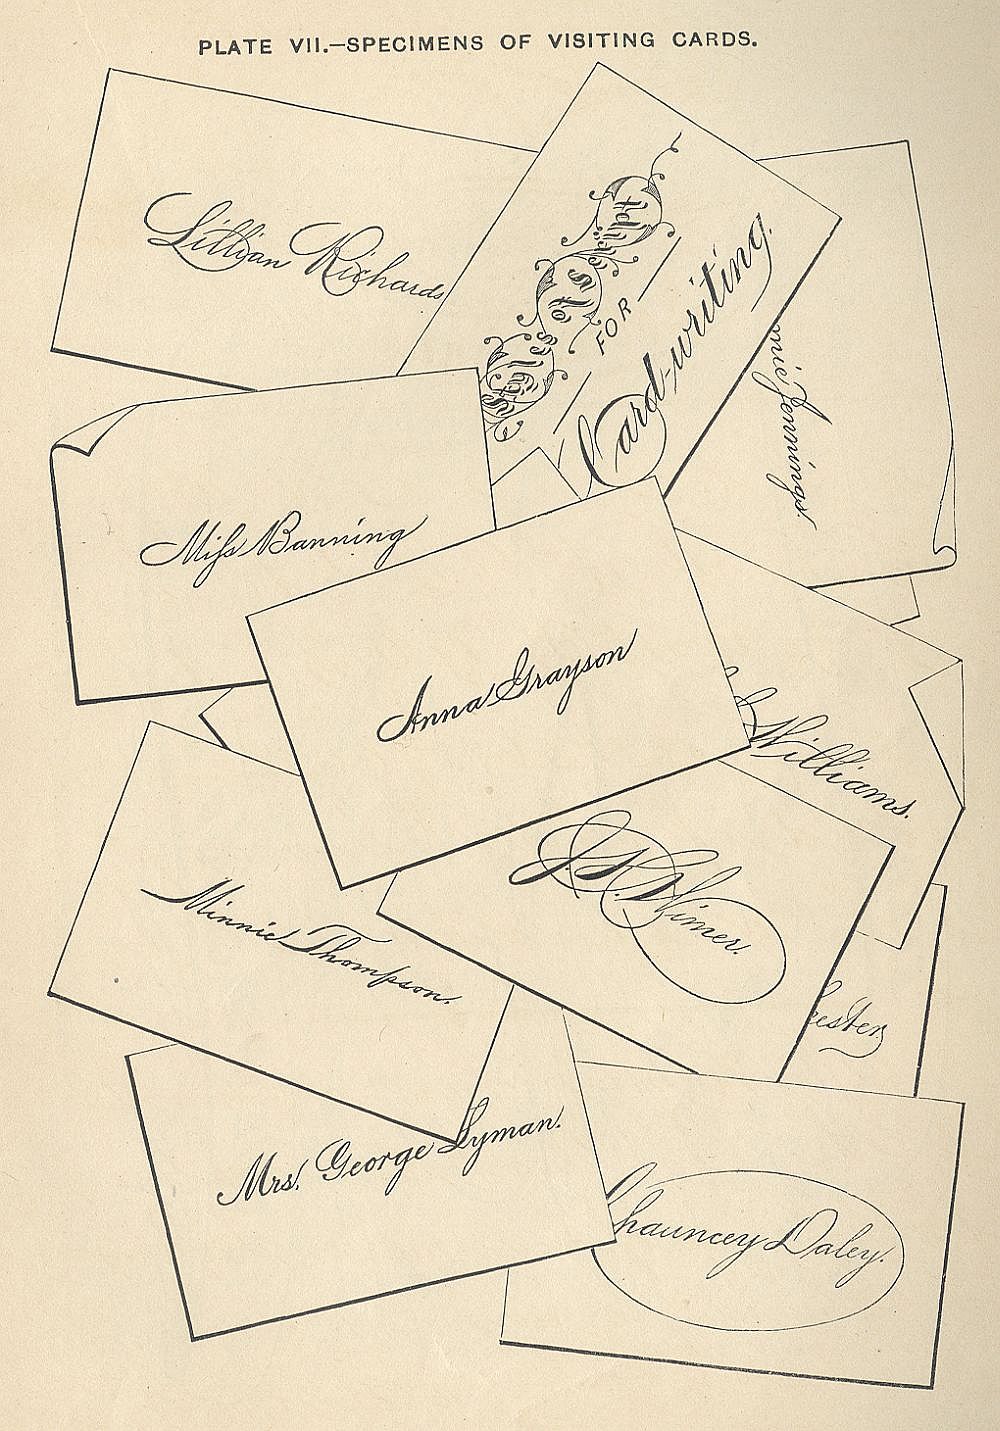 PLATE VII.—SPECIMENS OF VISITING CARDS.
Lillian Richards
Styles of Capitals
FOR
Card-writing.
mie Jennings.
Miss Banning
Anna Grayson
Williams.
Minnie Thompson.
Wimer.
ester
Mrs. George Lyman.
Chauncey Daley.